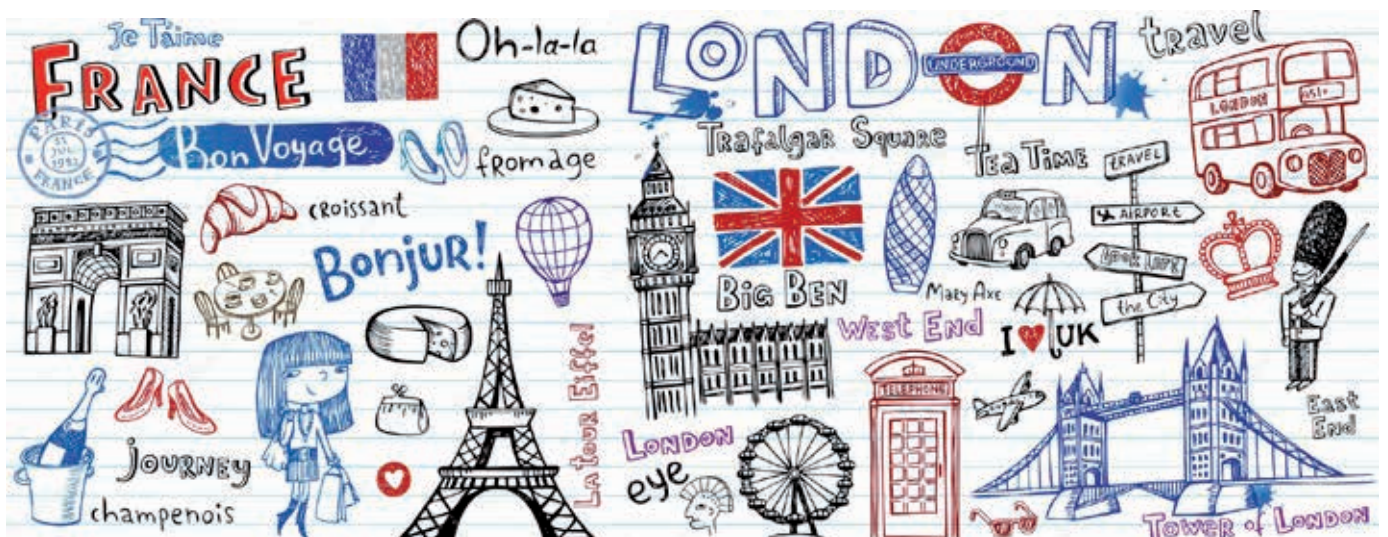 Je T'aime
FRANCE
PARIS
JUL
FRANCE
Bon Voyage
Oh-la-la
fromage
croissant
Bonjur!
La tour Eiffel
journey
champenois
LONDON
UNDERGROUND
travel
LONDON
Trafalgar Square
Tea Time
TRAVEL
AIRPORT
the City
BIG BEN
Mary Axe
WEST END
I UK
TELEPHONE
LONDON
eye
East
End
TOWER of LONDON